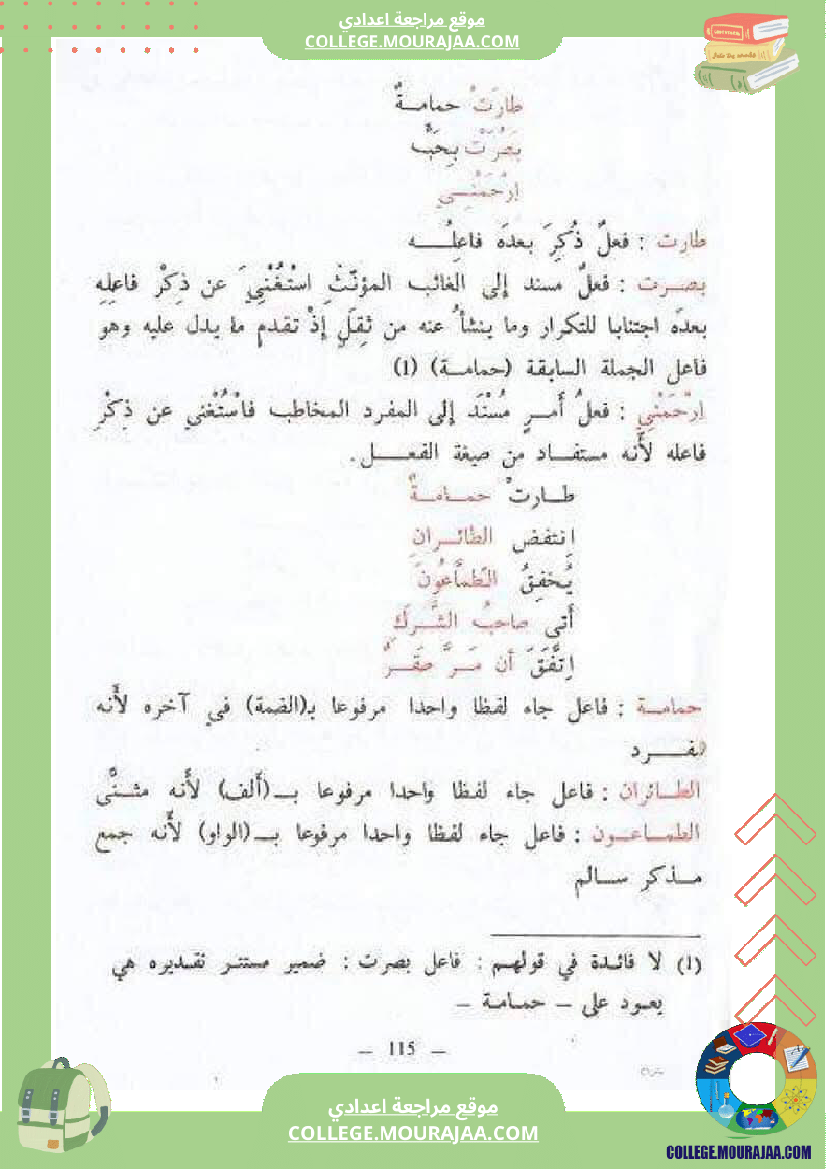 موقع مراجعة اعدادي
COLLEGE.MOURAJAA.COM
طارَتْ حمامـةٌ
بَصُرَتْ بِحَبٍّ
اِرْحَمْنـِـي
طارت : فعلٌ ذُكِرَ بعدَه فاعِلُــــه
بصــرت : فعلٌ مسند إلى الغائب المؤنّثِ اسْتُغْنِيَ عن ذِكْر فاعِلِهِ
بعدَه اجتنابا للتكرار وما ينشأُ عنه من ثِقَلٍ إذْ تقدم ما يدل عليه وهو
فاعل الجملة السابقة (حمامـة) (1)
اِرْحَمْنِي : فعلُ أَمـرٍ مُسْنَد إلى المفرد المخاطب فاسْتُغْني عن ذِكْرِ
فاعله لأنّه مستفـاد من صيغة الفعـــل.
طـارتْ حمـامـةٌ
اِنتفض الطّائـرانِ
يُخفِقُ الطَّمَّاعُونَ
أَتى صاحبُ الشَّـرَكِ
اِتَّفَقَ أن مَـرَّ صقَـرٌ
حمامـة : فاعل جاء لفظا واحدا مرفوعا بـ(الضمة) في آخره لأنّه
مفـــرد
الطـائران : فاعل جاء لفظا واحدا مرفوعا بــ(أَلف) لأنّه مثـنَّى
الطمـاعـون : فاعل جاء لفظا واحدا مرفوعا بــ(الواو) لأنّه جمع
مـذكر سـالم
(1) لا فائدة في قولهـم : فاعل بصرت : ضمير مستتـر تقديره هي
يعـود على – حمـامـة –
– 115 –
موقع مراجعة اعدادي
COLLEGE.MOURAJAA.COM
COLLEGE.MOURAJAA.COM